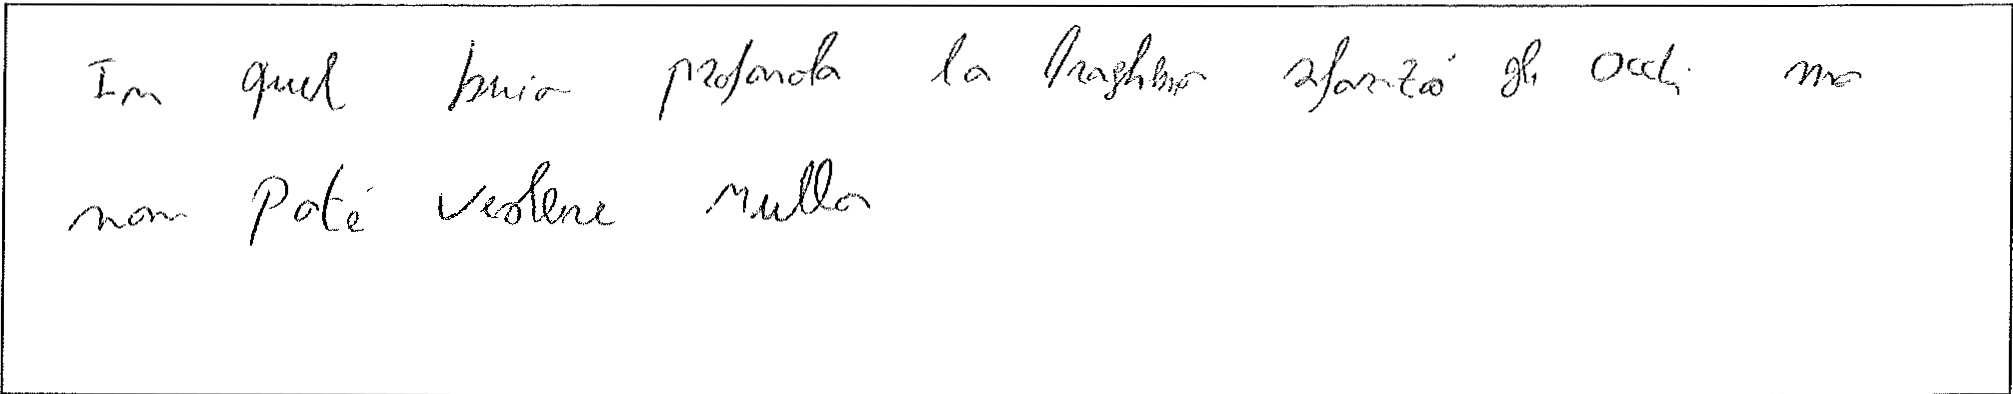 In quel buio profondo la draghbia sforzò gli occhi ma
non poté vedere nulla